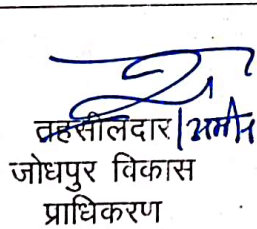 तहसीलदार/अमीन
जोधपुर विकास
प्राधिकरण